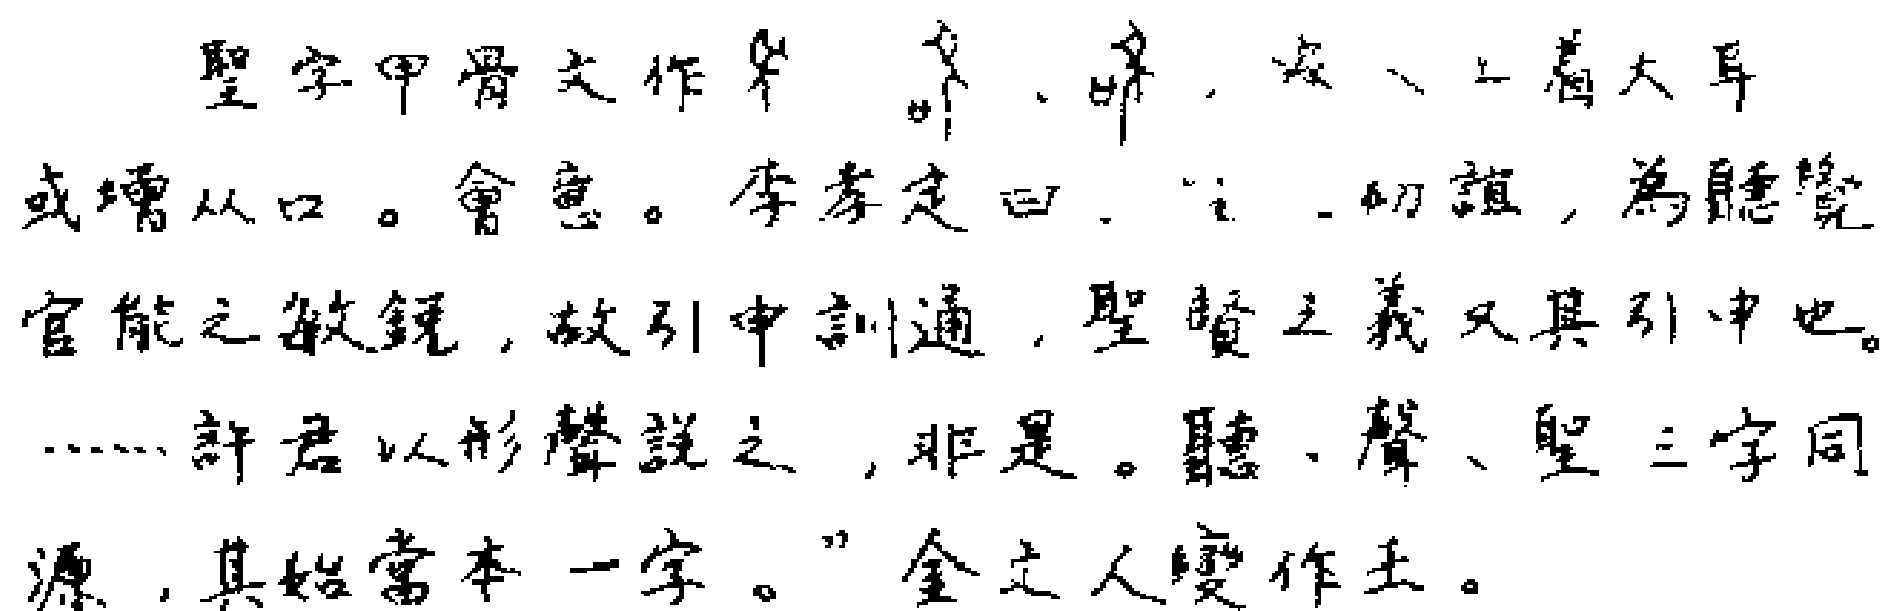 聖字甲骨文作 、 、 , 从人上着大耳
或增从口。會意。李孝定曰:" 初誼,為聽覺
官能之敏銳,故引申訓通,聖賢之義又其引申也。
……許君以形聲說之,非是。聽、聲、聖三字同
源,其始當本一字。"金文人變作壬。